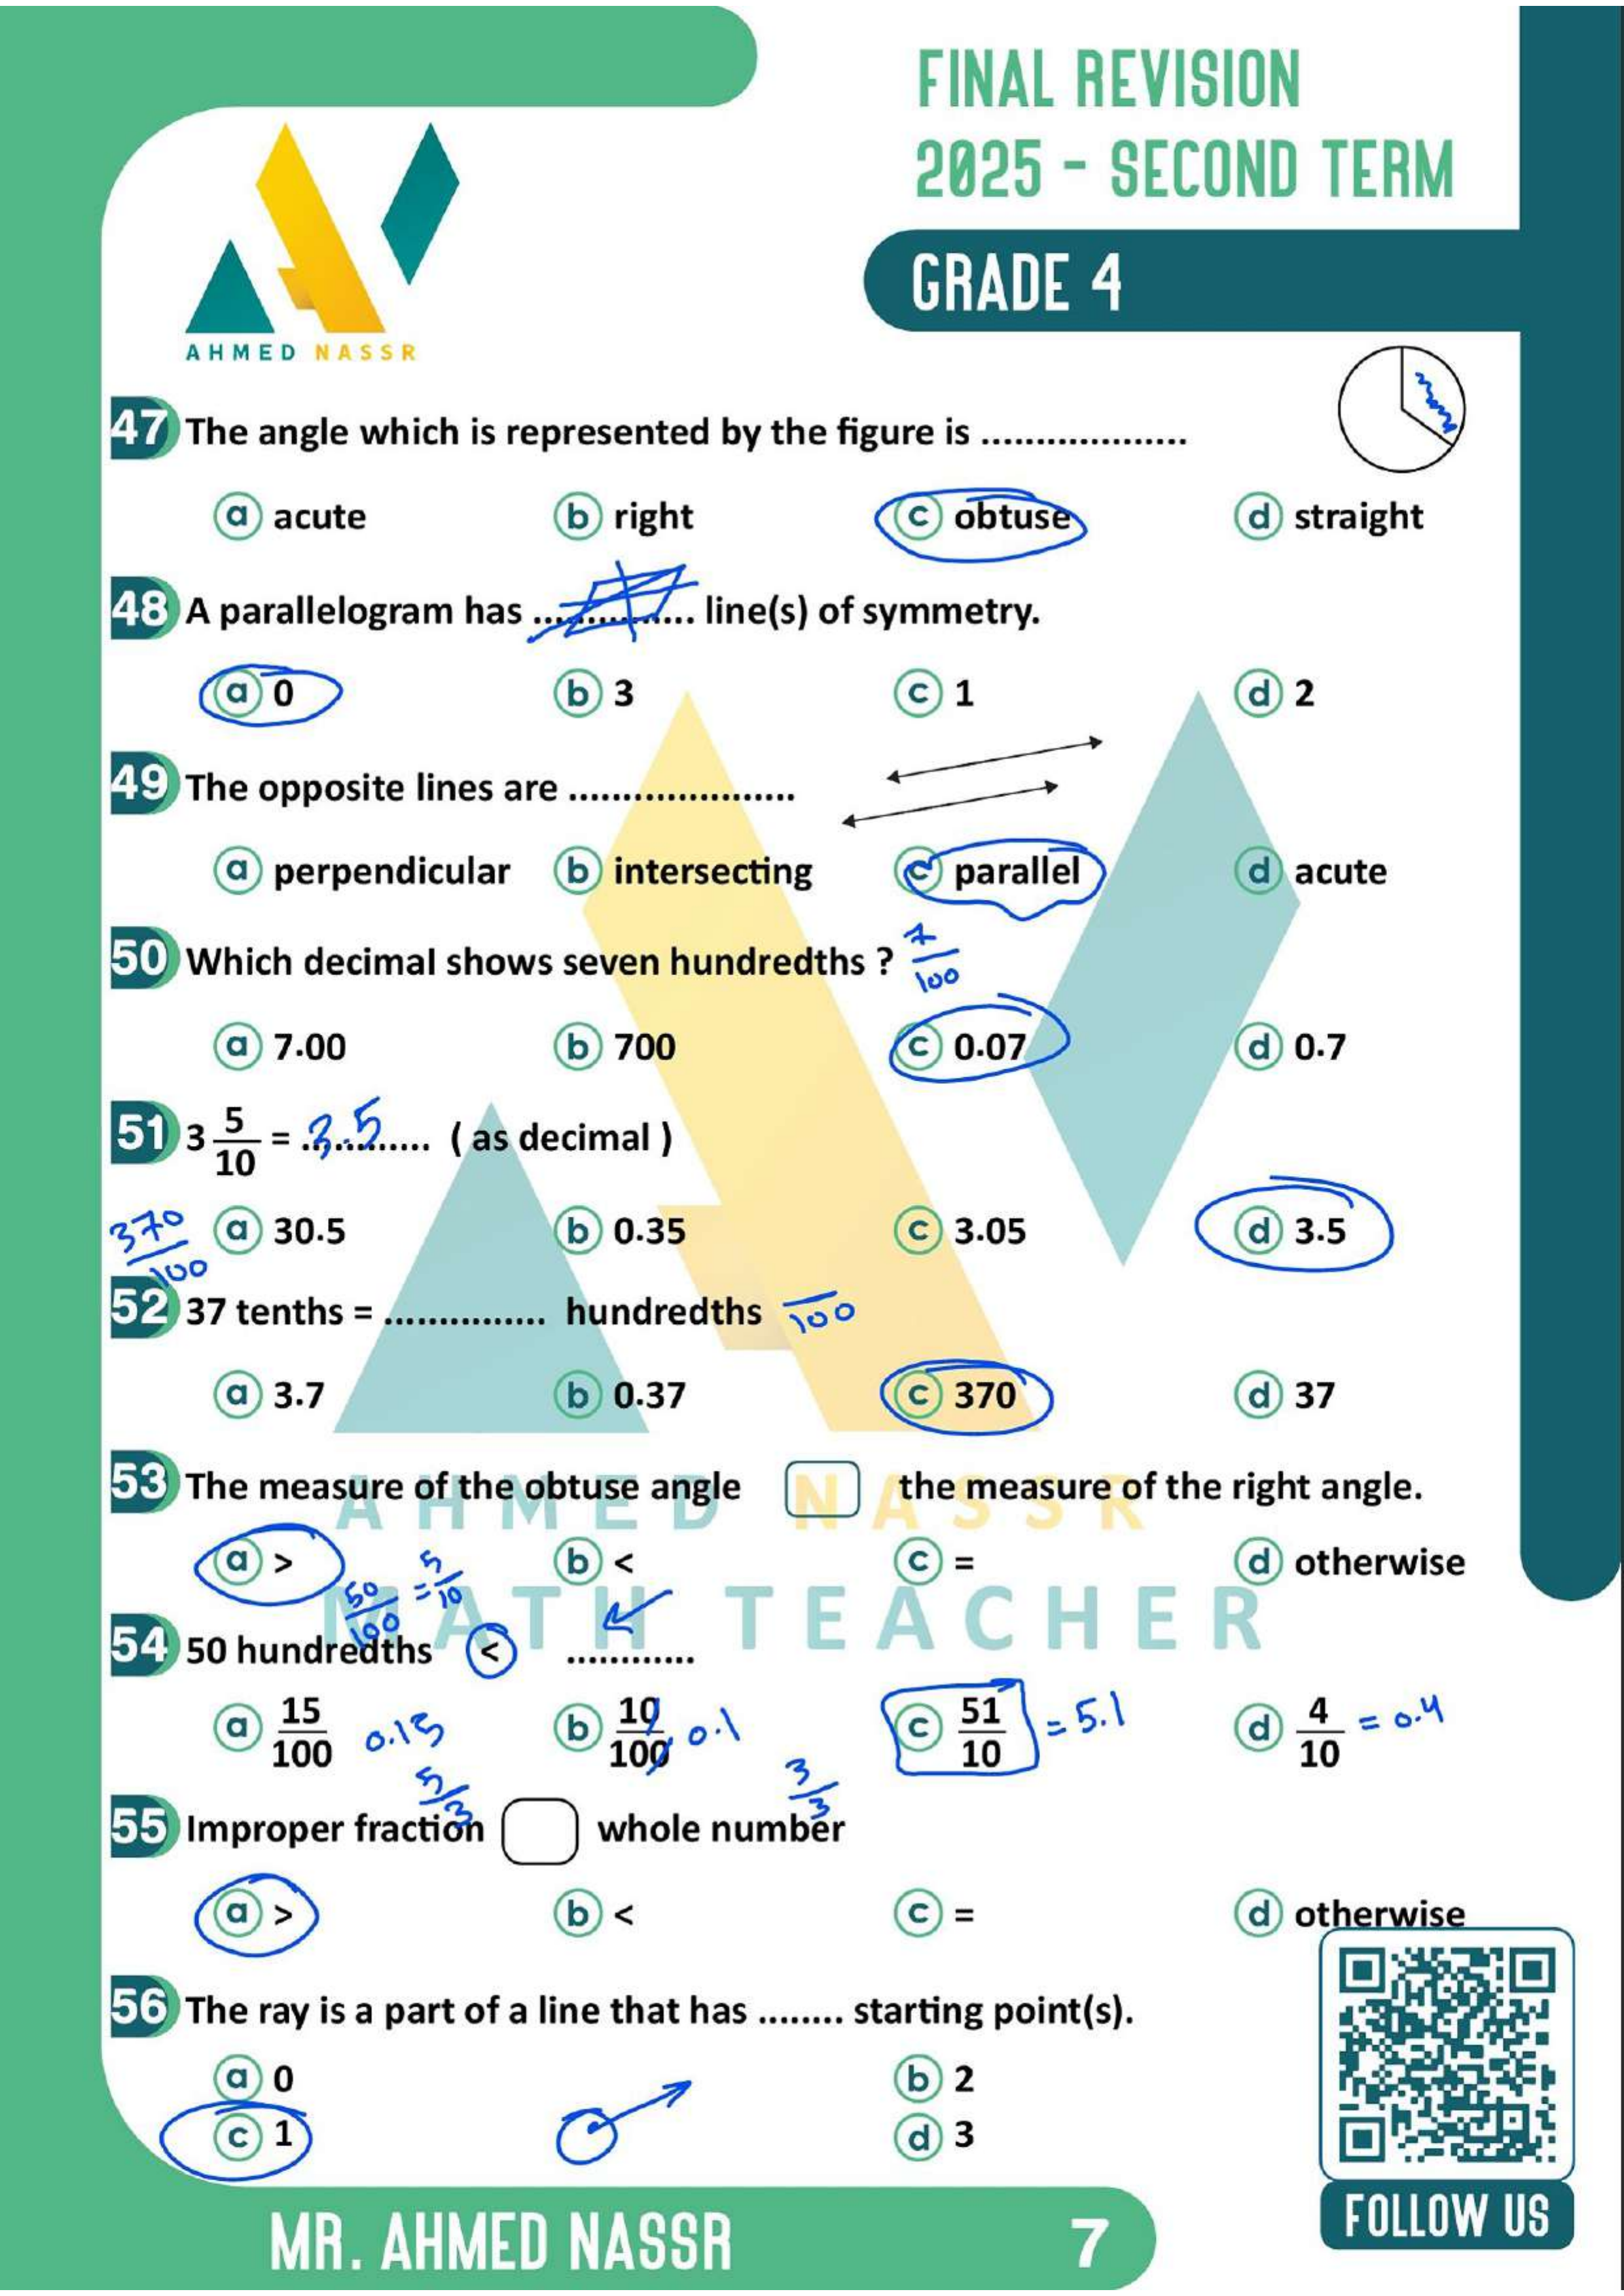 FINAL REVISION
2025 - SECOND TERM
GRADE 4
AHMED NASSR
47 The angle which is represented by the figure is ...................
a acute b right c obtuse d straight
48 A parallelogram has ............... line(s) of symmetry.
a 0 b 3 c 1 d 2
49 The opposite lines are .....................
a perpendicular b intersecting c parallel d acute
50 Which decimal shows seven hundredths ? 7/100
a 7.00 b 700 c 0.07 d 0.7
51 3 5/10 = 3.5 ............ ( as decimal )
a 30.5 b 0.35 c 3.05 d 3.5
370/100
52 37 tenths = ............... hundredths /100
a 3.7 b 0.37 c 370 d 37
53 The measure of the obtuse angle the measure of the right angle.
AHMED NASSR
a > b < c = d otherwise
50/100 = 5/10
MATH TEACHER
54 50 hundredths < ............
a 15/100 0.15 b 10/100 0.1 c 51/10 = 5.1 d 4/10 = 0.4
5/3 3/3
55 Improper fraction whole number
a > b < c = d otherwise
56 The ray is a part of a line that has ........ starting point(s).
a 0 b 2
c 1 d 3
MR. AHMED NASSR
7
FOLLOW US